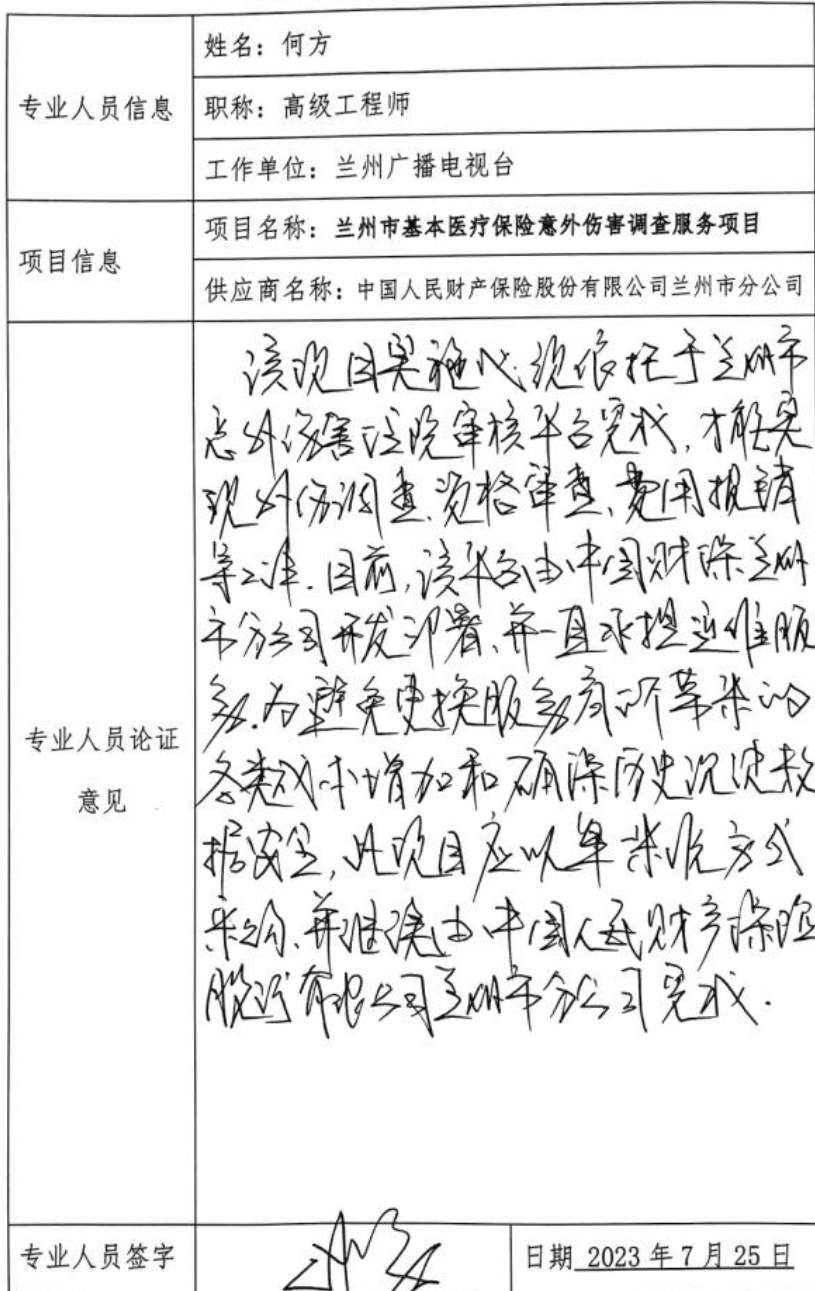 专业人员信息
姓名：何方
职称：高级工程师
工作单位：兰州广播电视台
项目信息
项目名称：兰州市基本医疗保险意外伤害调查服务项目
供应商名称：中国人民财产保险股份有限公司兰州市分公司
专业人员论证
意见
该项目实施必须依托于兰州市
意外伤害住院审核平台完成，才能实
现外伤调查、资格审查、费用报销
等工作．目前，该平台由中国财保兰州
市分公司开发部署，并一直承担运维服
务．为避免更换服务商所带来的
各类成本增加和确保历史沉淀数
据安全，此项目应以单一来源方式
采购，并继续由中国人民财产保险
股份有限公司兰州市分公司完成．
专业人员签字
日期 2023 年 7 月 25 日